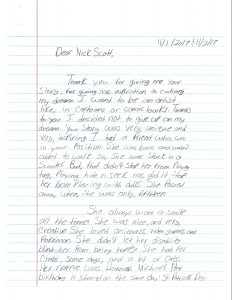 11/1/2017
Dear Nick Scott,
Thank you for giving me your
Story, for giving me inspiration to
my dream. I want to be an artist
like, in Cartoons or comic books thanks
to you I decided not to give up on my
dream. Your Story was very unique and
very, inspiring I had a friend who was
in your Position. She was born and
to walk So, She was Stuck in a
Scooter. But, that didn't Stop her from Playing
tag, Playing hide n seek nor, did it Stop
her from Playing with dolls. She Passed
away when, She was only, fifteen
She always wore a smile
all the time. She was nice, and very,
Creative She loved animals, video games, and
Pokémon. She didn't let her disability
her from being happy. She had
Crabs, Some dogs, and a lot of Cats.
Her name was Hannah Michell Her
birthday is Shared on the Same day, St Patrick's Day